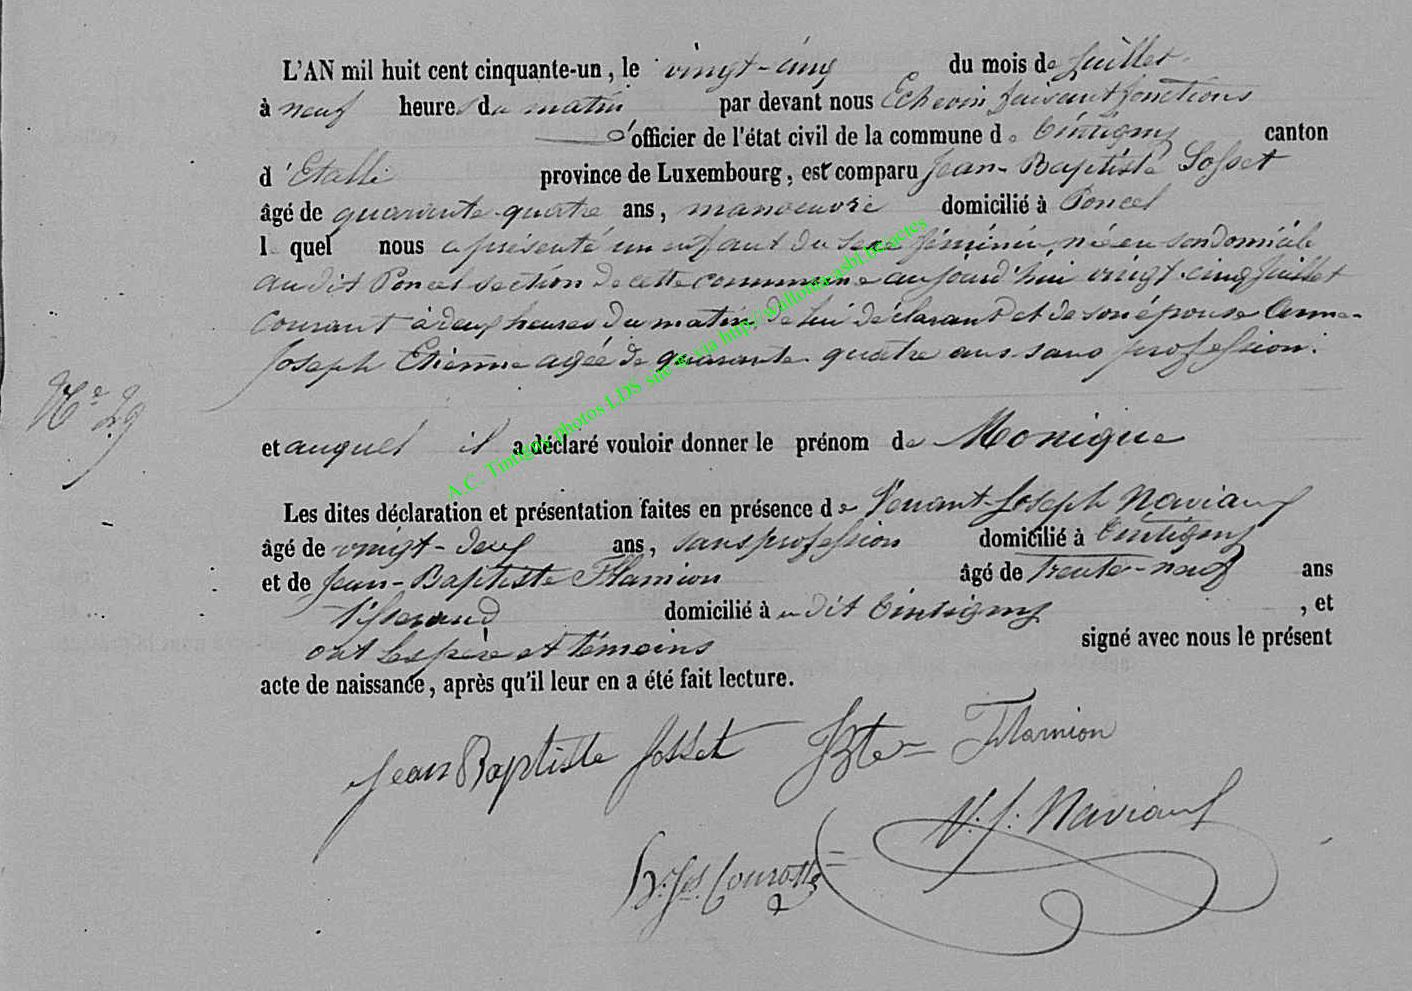 L'AN mil huit cent cinquante-un, le vingt-cinq du mois de Juillet
à neuf heures du matin par devant nous Echevin faisant fonctions
d'officier de l'état civil de la commune de Tintigny canton
d'Etalle province de Luxembourg, est comparu Jean-Baptiste Josset
âgé de quarante-quatre ans, manoeuvre domicilié à Poncel
lequel nous a présenté un enfant du sexe féminin, né en son domicile
au dit Poncel section de cette commune aujourd'hui vingt-cinq Juillet
courant à deux heures du matin de lui déclarant et de son épouse Anne-
Joseph Etienne agée de quarante-quatre ans sans profession.
N° 29
et auquel il a déclaré vouloir donner le prénom de Monique
Les dites déclaration et présentation faites en présence de Venant-Joseph Naviaux
âgé de vingt-deux ans, sans profession domicilié à Tintigny
et de Jean-Baptiste Flamion âgé de trente-neuf ans
tisserand domicilié à dit Tintigny, et
ont les père et témoins signé avec nous le présent
acte de naissance, après qu'il leur en a été fait lecture.
Jean Baptiste Josset JBte Flamion
V. J. Naviaux
A.C. Tintigny photos LDS site & via http://walloniaasbl.be/actes